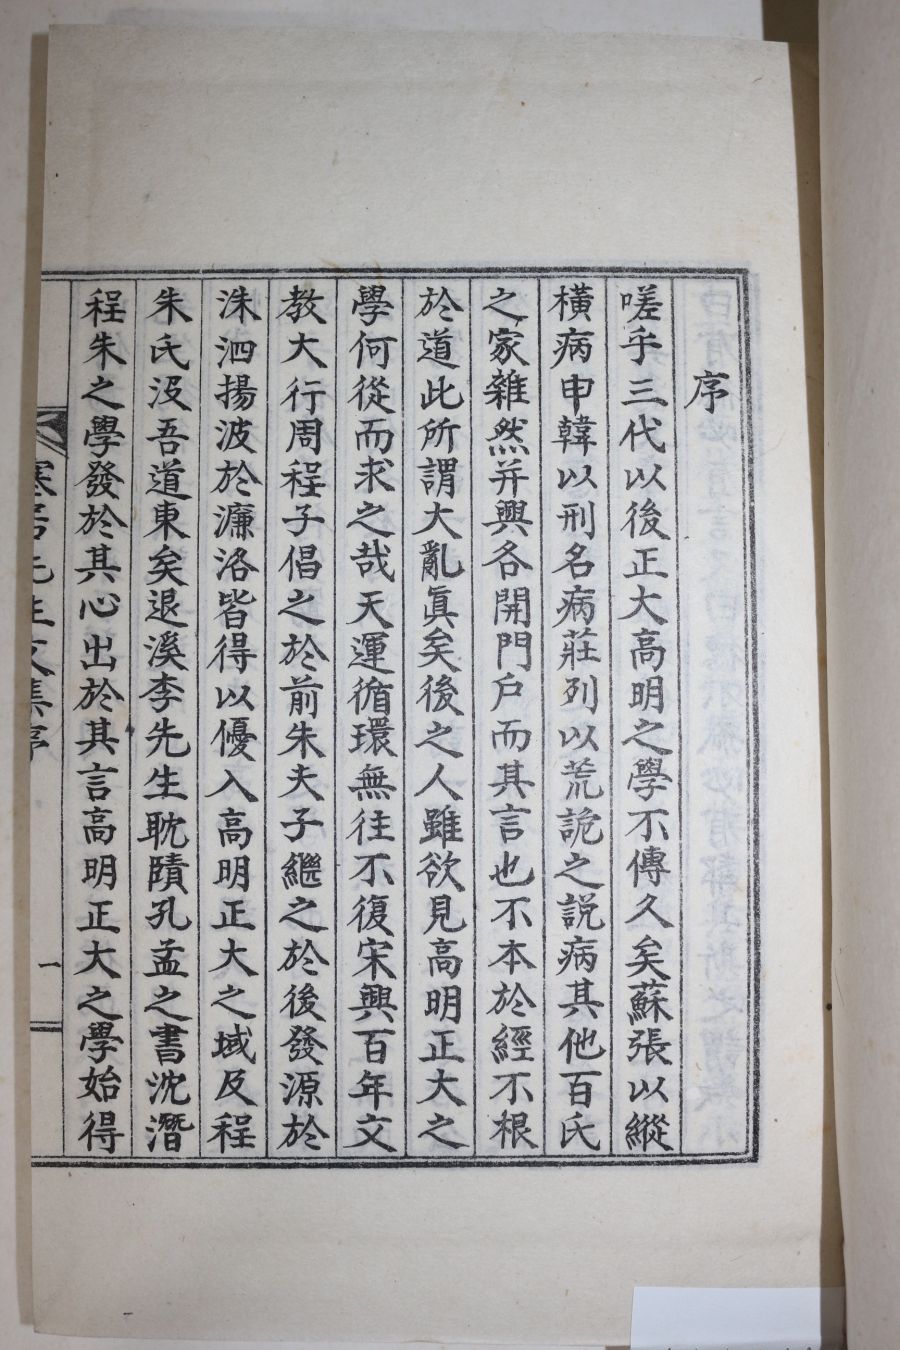 序
嗟乎三代以後正大高明之學不傳久矣蘇張以縱
橫病申韓以刑名病莊列以荒詭之説病其他百氏
之家雜然并興各開門戶而其言也不本於經不根
於道此所謂大亂眞矣後之人雖欲見高明正大之
學何從而求之哉天運循環無往不復宋興百年文
教大行周程子倡之於前朱夫子繼之於後發源於
洙泗揚波於濂洛皆得以優入高明正大之域及程
朱氏沒吾道東矣退溪李先生耽賾孔孟之書沈潛
程朱之學發於其心出於其言高明正大之學始得
寒居先生文集序
一